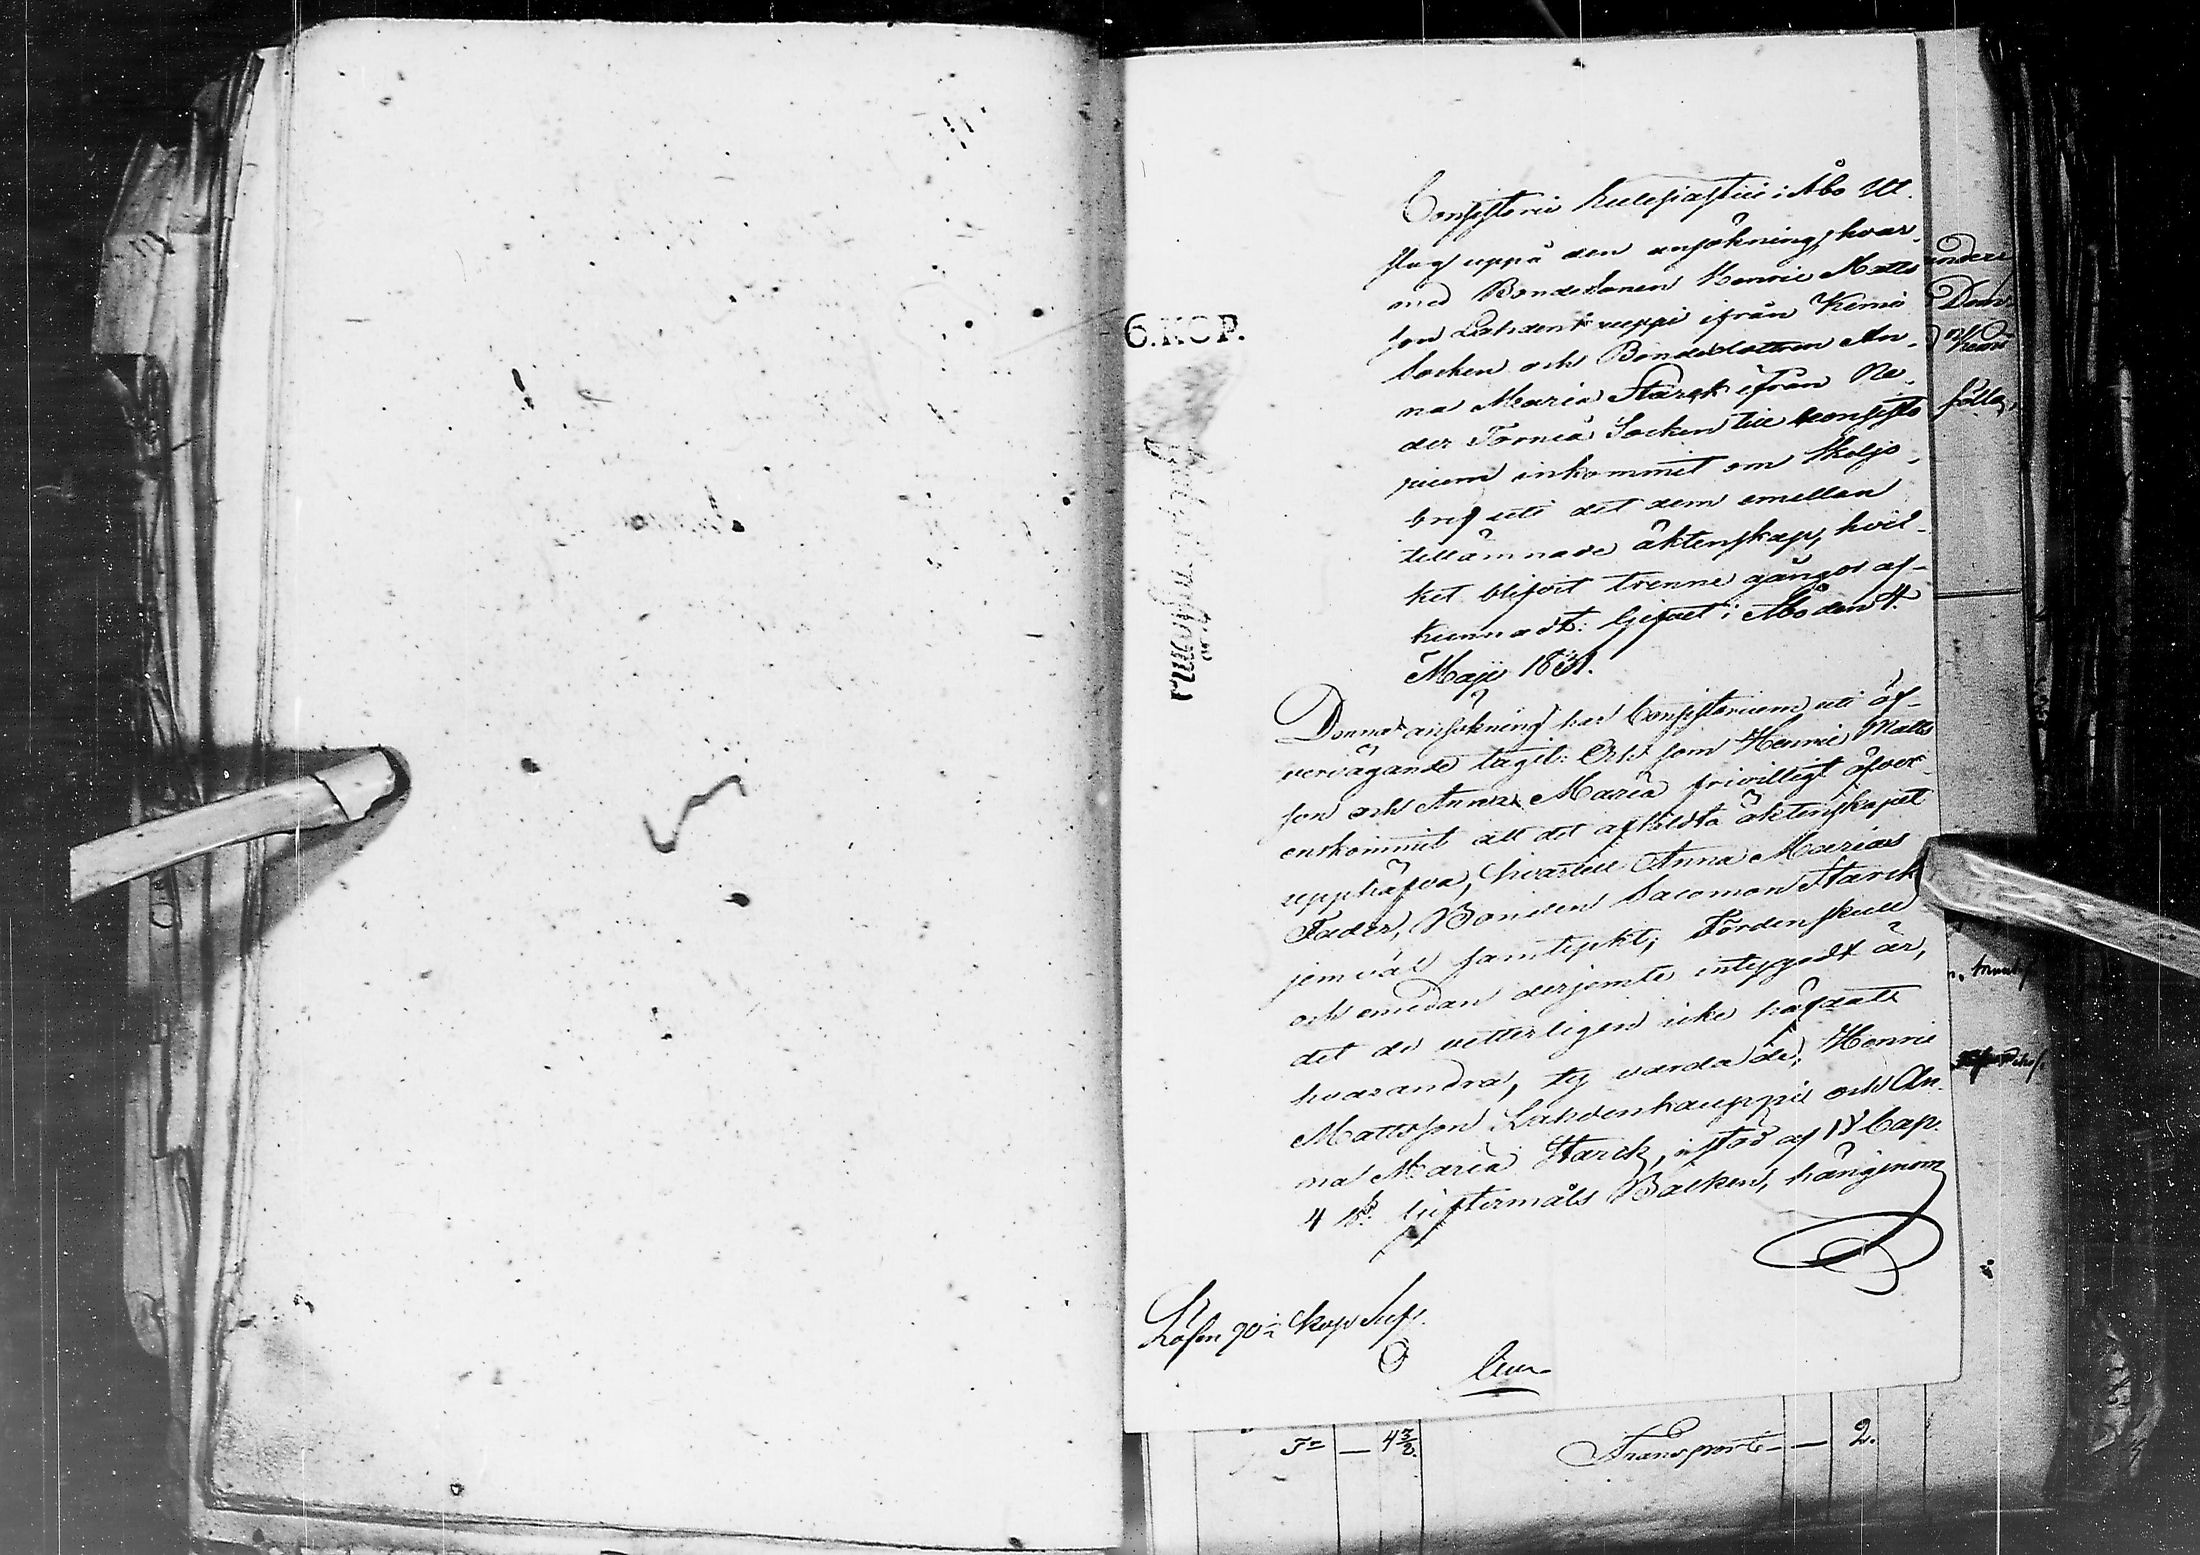 Consistorii Ecclesiastici i Åbo Ut-
slag uppå den ansökning, hvar-
med Bondesonen Henric Matts
son Lahdenkauppi ifrån Kemi
Socken och Bondedottren An-
na Maria Starck ifrån Ne-
der Torneå Socken till Consisto
rium inkommit om Skiljo-
bref uti det dem emellan
tillämnade äktenskap, hvil-
ket blifvit trenne gånger af-
kunnadt: Gifvet i Åbo den 4.
Maji 1831.
Denna ansökning har Consistorium uti öf-
vervägande tagit: Och som Henric Matts
son och Anna Maria frivilligt öfver-
enskommit att det aftalda äktenskapet
upphäfva, hvartill Anna Marias
Fader, Bonden Salomon Starck
jemväl samtyckt; Fördenskull
och emedan derjemte intygadt är,
det de vetterligen icke häfdatt
hvarandra, ty varda de, Henric
Mattsson Lahdenkauppi och An-
na Maria Starck, i stöd af IV Cap.
4 §. Giftermåls Balken, härigenom
Lösen 90 Kop Silf.
6.KOP.
Fr — 4 3/2.
Transport — — 2.